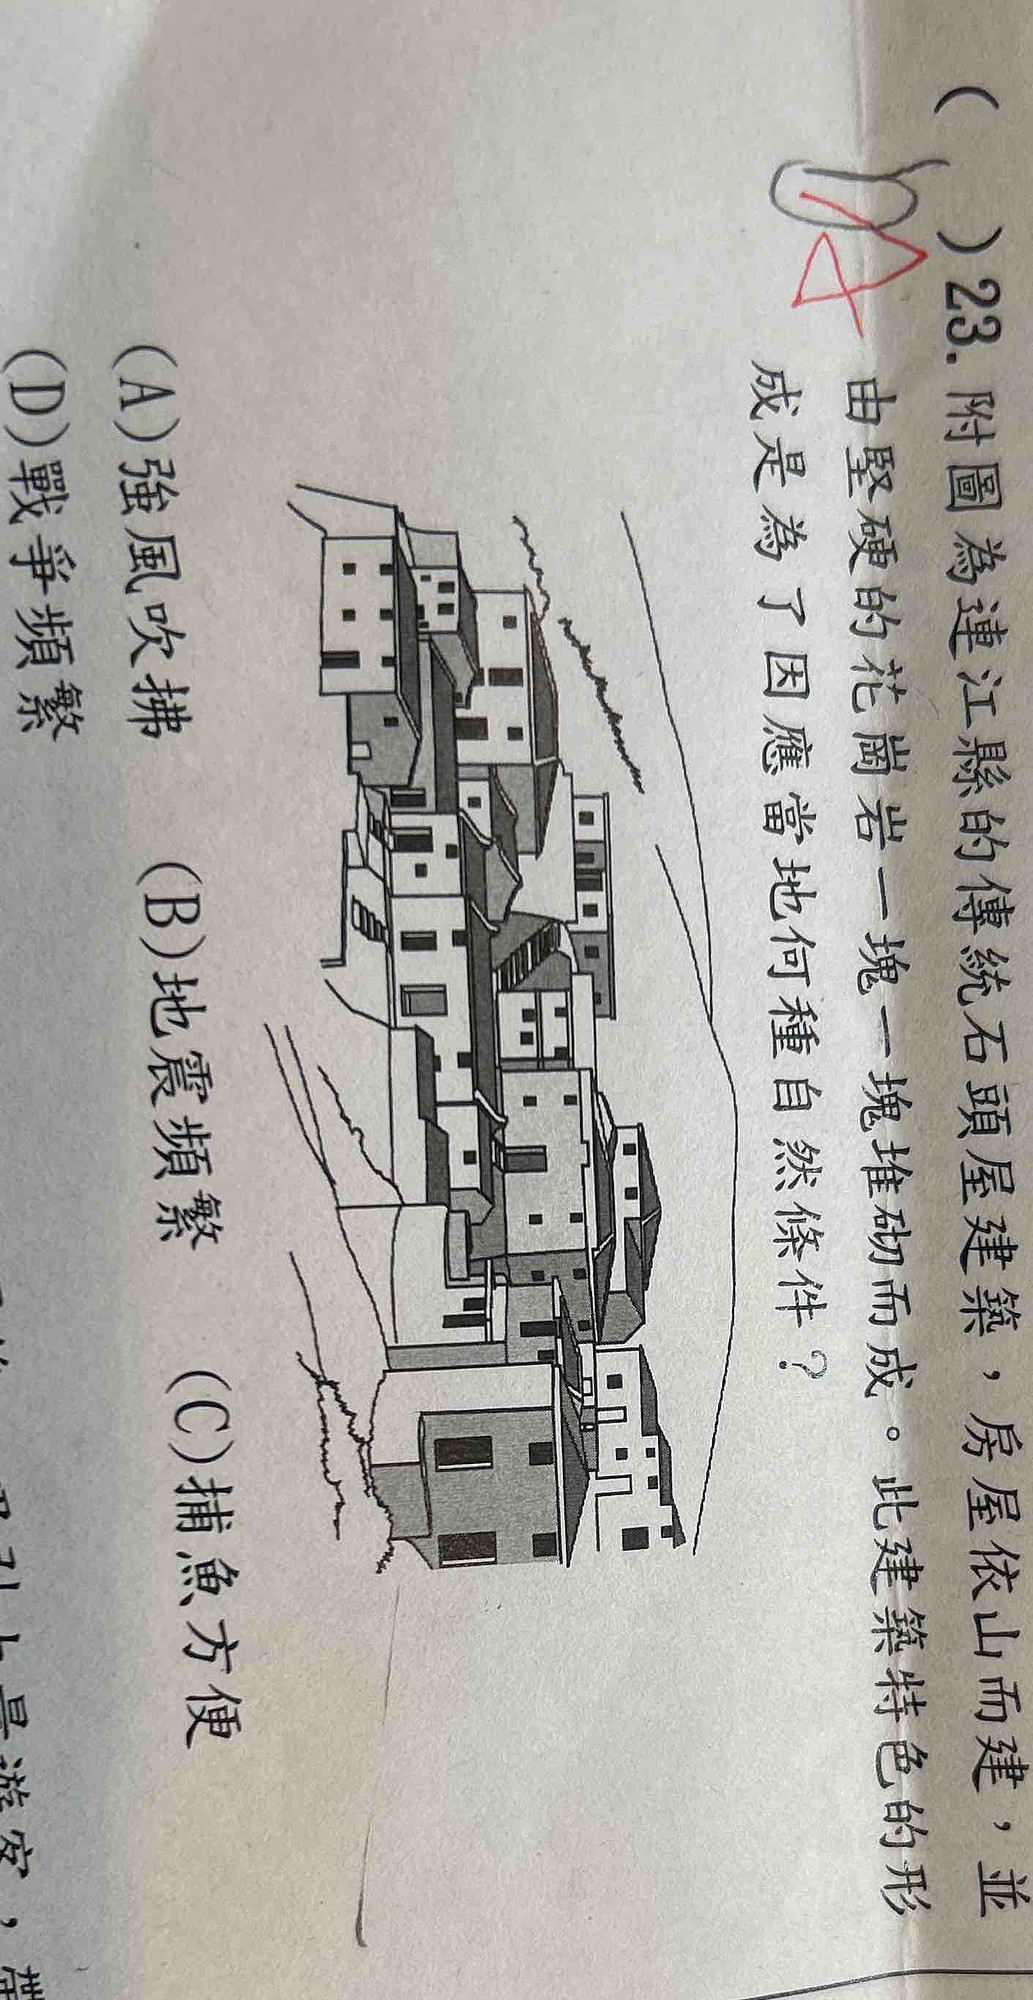 ( )23. 附圖為連江縣的傳統石頭屋建築，房屋依山而建，並
由堅硬的花崗岩一塊一塊堆砌而成。此建築特色的形
成是為了因應當地何種自然條件？
(A)強風吹拂 (B)地震頻繁 (C)捕魚方便
(D)戰爭頻繁